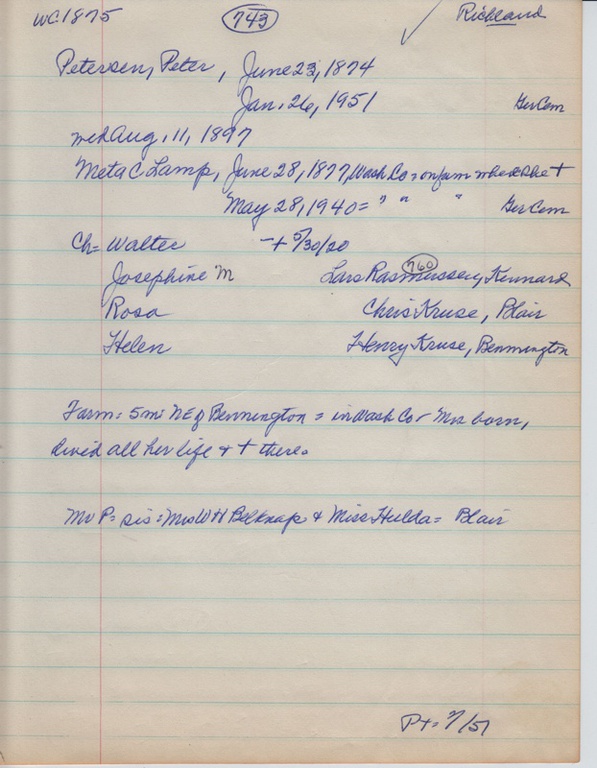 WC1875 743 Richland
Petersen, Peter, June 23, 1874
Jan. 26, 1951 Ger Cem
md Aug. 11, 1897
Meta C Lamp, June 28, 1877, Wash Co = on farm where she +
May 28, 1940 = " " " Ger Cem
Ch = Walter - + 5/30/20
Josephine M Lars Rasmussen, Kennard 760
Rosa Chris Kruse, Blair
Helen Henry Kruse, Bennington
Farm: 5 mi NE of Bennington = in Wash Co - Mrs born,
lived all her life & + there.
Mr P = sis: Mrs W H Belknap & Miss Hulda = Blair
P+ = 7/51